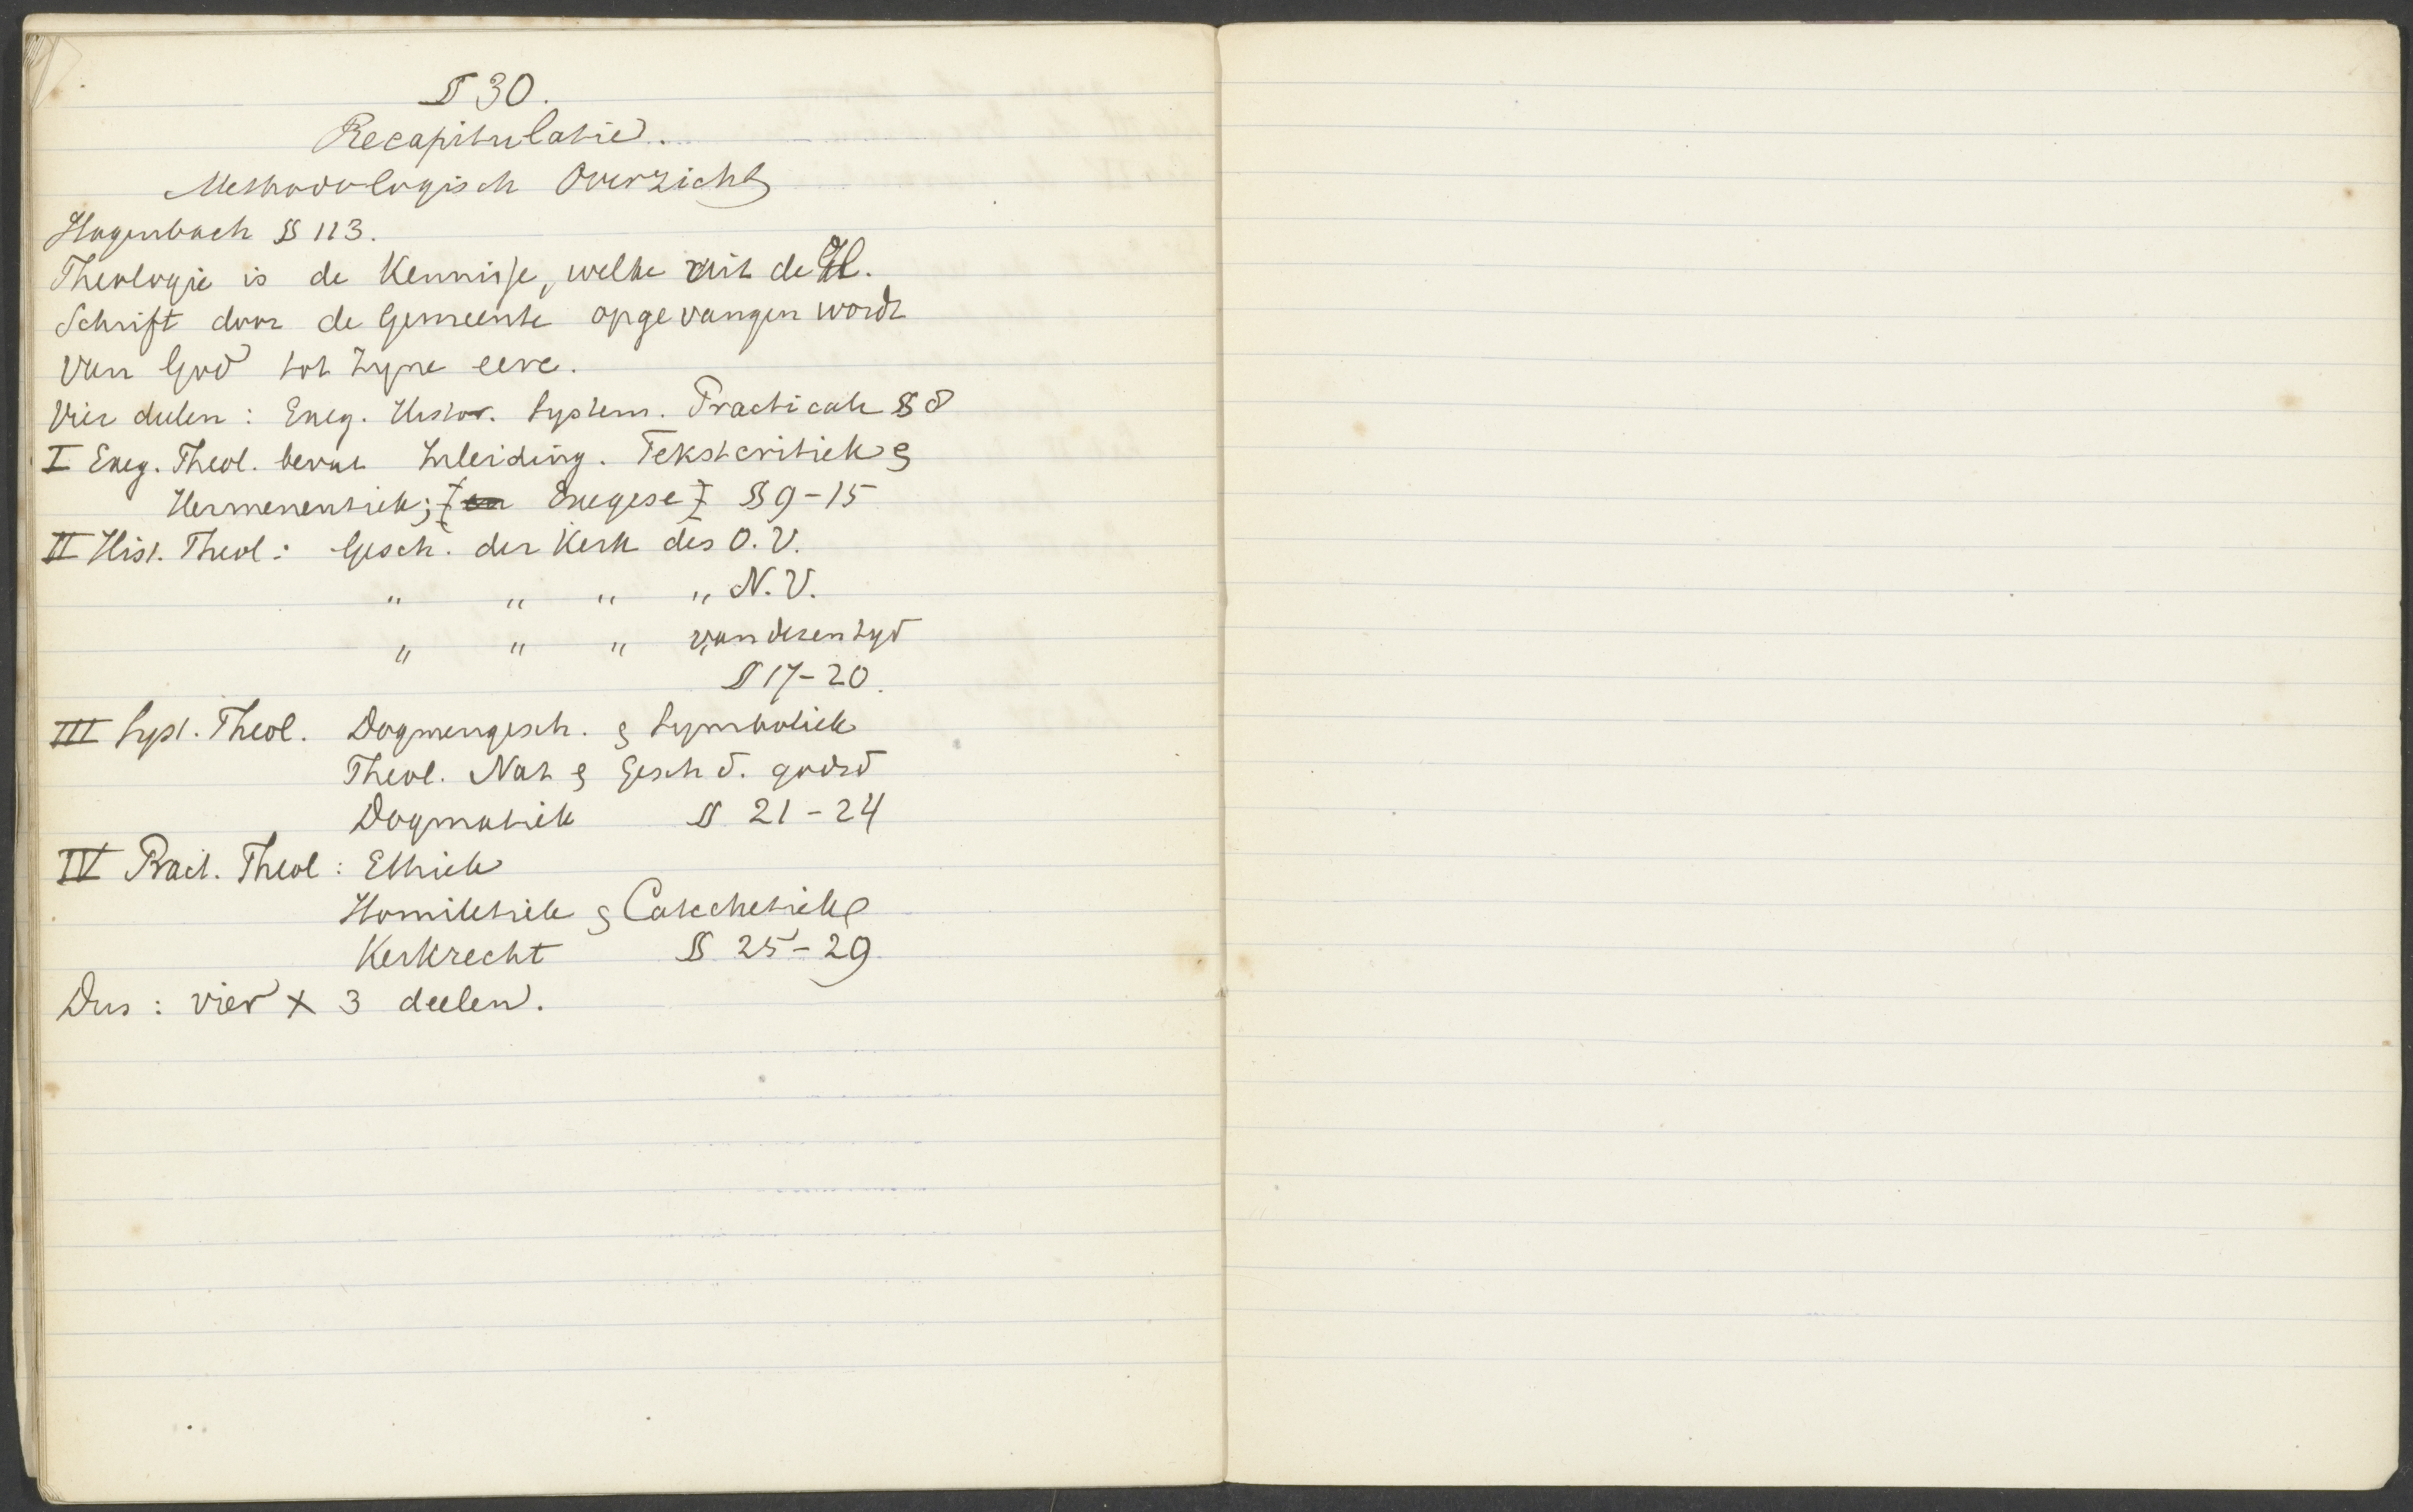 § 30.
Recapitulatie.
Methodologisch Overzicht
Hagenbach § 113.
Theologie is de Kennisse, welke uit de H.
Schrift door de Gemeente opgevangen wordt
van God tot Zyne eere.
Vier deelen: Exeg. Histor. System. Practicale § 8
I Exeg. Theol. bevat Inleiding. Tekstcritiek &
Hermeneutiek; [en Exegese] § 9-15
II Hist. Theol: Gesch. der Kerk des O.V.
" " " " N.V.
" " " van dezen tyd
§ 17-20.
III Syst. Theol. Dogmengesch. & Symboliek
Theol. Nat & Gesch d. godsd
Dogmatiek § 21-24
IV Pract. Theol: Ethiek
Homiletiek & Catechetiek
Kerkrecht § 25-29
Dus: vier x 3 deelen.